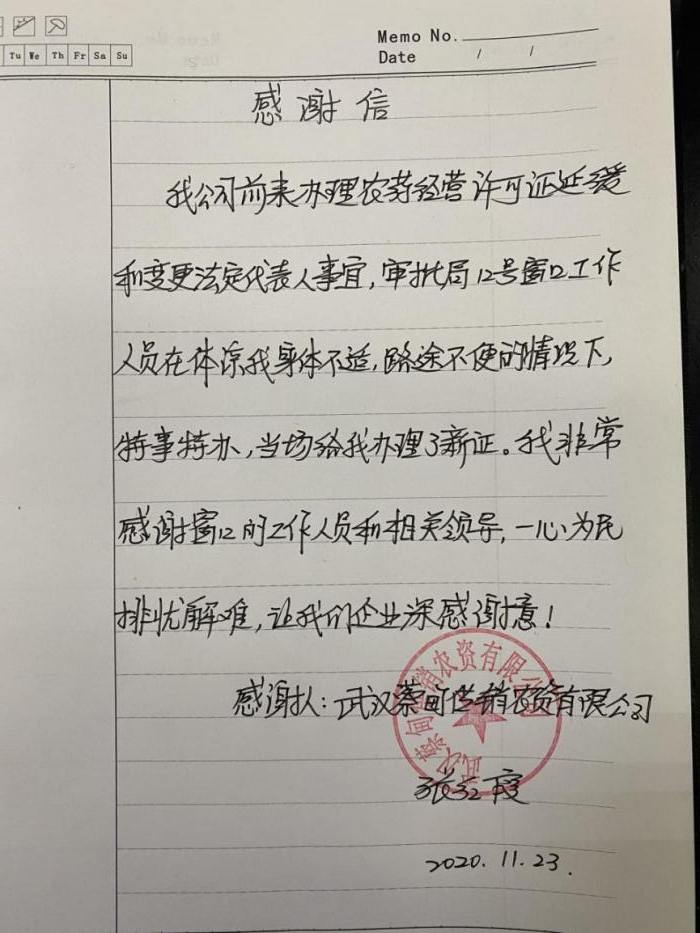 Memo No.
Date / /
Tu We Th Fr Sa Su
感谢信
我公司前来办理农药经营许可证延续
和变更法定代表人事宜,审批局12号窗口工作
人员在体谅我身体不适,路途不便的情况下,
特事特办,当场给我办理了新证。我非常
感谢窗口的工作人员和相关领导,一心为民
排忧解难,让我们企业深感谢意!
感谢人:武汉蔡甸供销农资有限公司
武汉蔡甸供销农资有限公司
张红霞
2020.11.23.